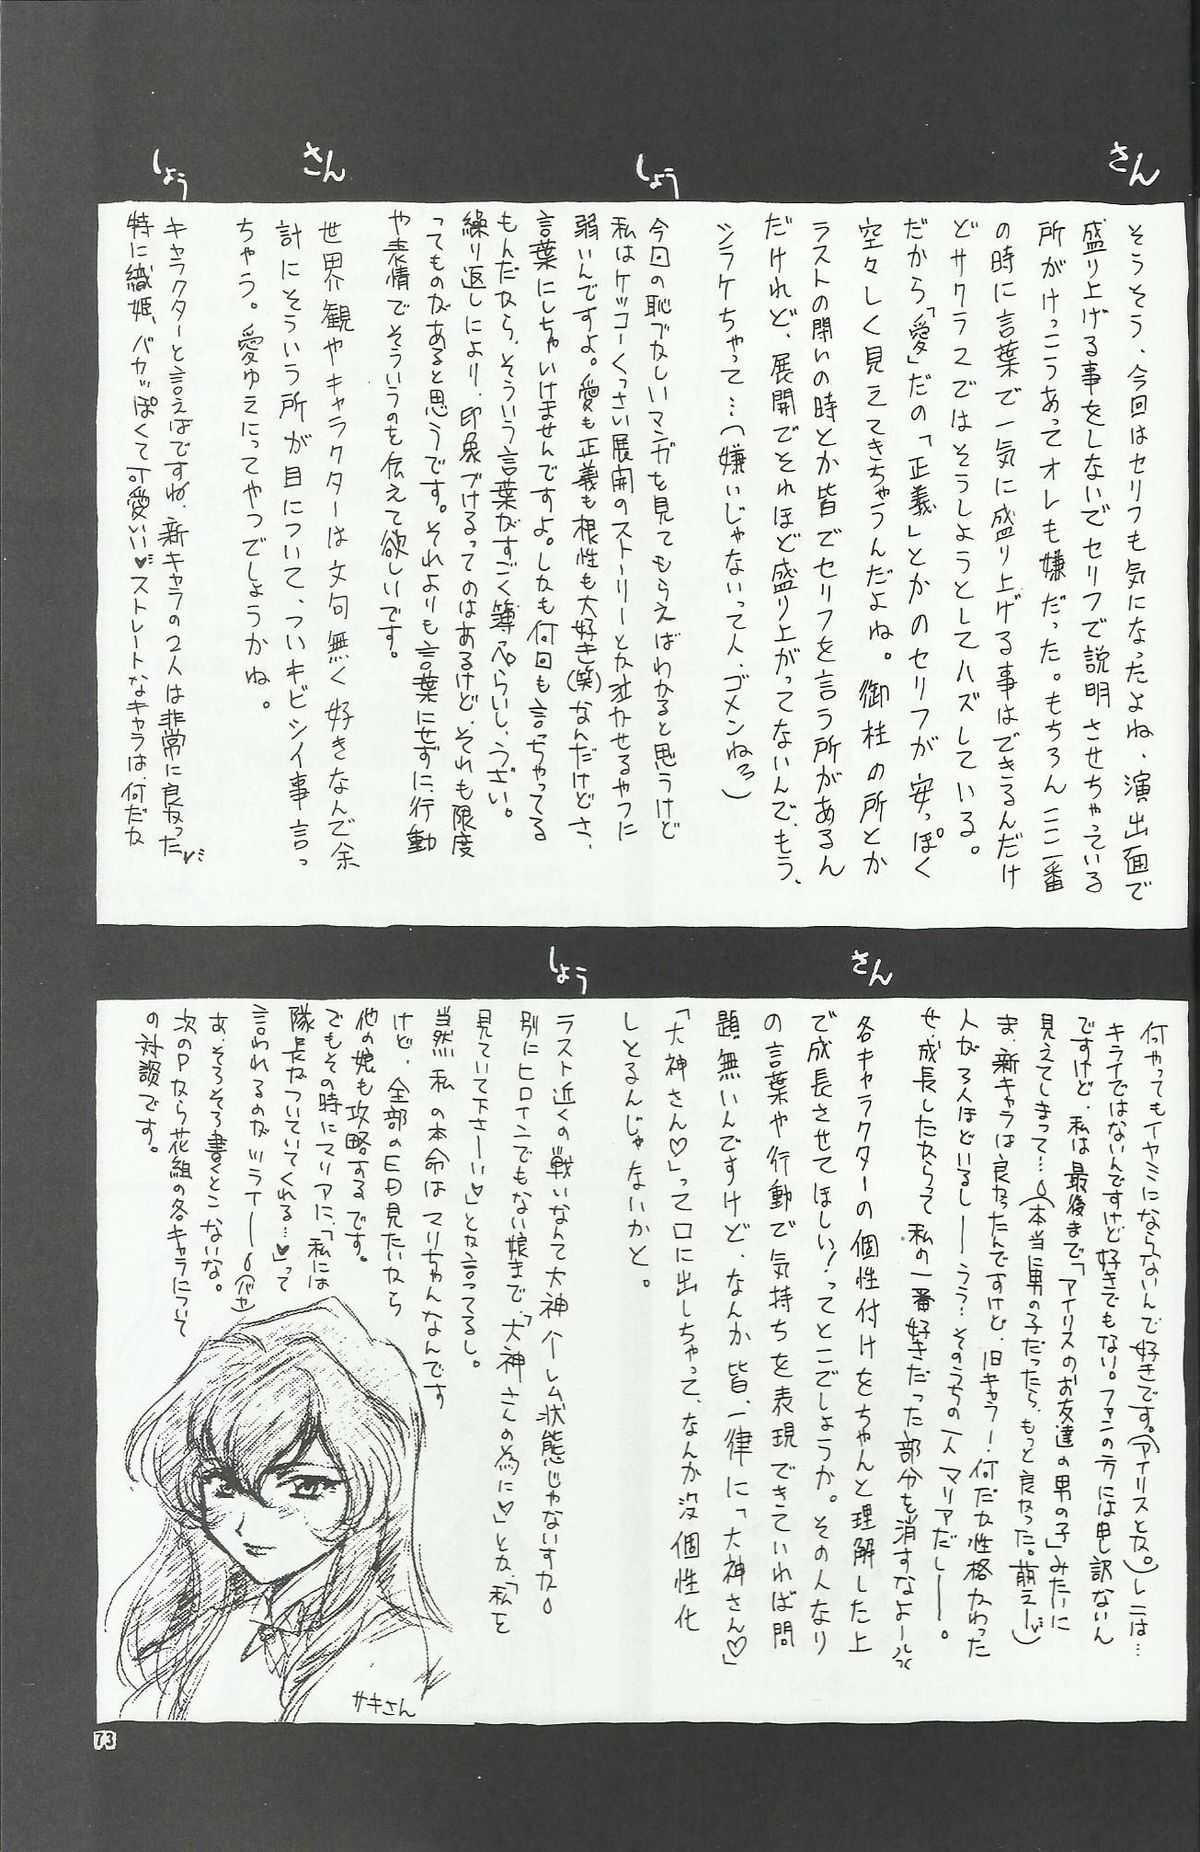 さん
そうそう、今回はセリフも気になったよね、演出面で
盛り上げる事をしないでセリフで説明させちゃっている
所がけっこうあってオレも嫌だった。もちろんここ一番
の時に言葉で一気に盛り上げる事はできるんだけ
どサクラ2ではそうしようとしてハズしている。
だから「愛」だの「正義」とかのセリフが安っぽく
空々しく見えてきちゃうんだよね。御柱の所とか
ラストの闘いの時とか皆でセリフを言う所があるん
だけれど、展開でそれほど盛り上がってないんで、もう、
シラケちゃって…(嫌いじゃないって人、ゴメンねろ)
しょう
今回の恥ずかしいマンガを見てもらえばわかると思うけど
私はケッコーくっさい展開のストーリーとか泣かせるやつに
弱いんですよ。愛も正義も根性も大好き(笑)なんだけどさ、
言葉にしちゃいけませんですよ。しかも何回も言っちゃってる
もんだから、そういう言葉がすごく薄っぺらいし、うざい。
繰り返しにより、印象づけるってのはあるけど、それも限度
ってものがあると思うです。それよりも言葉にせずに行動
や表情でそういうのを伝えて欲しいです。
さん
世界観やキャラクターは文句無く好きなんで余
計にそういう所が目について、ついキビシイ事言っ
ちゃう。愛ゆえにってやつでしょうかね。
しょう
キャラクターと言えばですね、新キャラの2人は非常に良かった♥
特に織姫、バカッぽくて可愛い♥ストレートなキャラは、何だか
何やってもイヤミにならないんで好きです。(アイリスとか。)レニは…
キライではないんですけど好きでもない。ファンの方には申し訳ないん
ですけど、私は最後まで「アイリスのお友達の男の子」みたいに
見えてしまって…(本当に男の子だったら、もっと良かった。萌えー♥)
ま、新キャラは良かったんですけど、旧キャラー・何だか性格かわった
人が3人ほどいるし――うう…そのうちの一人マリアだし――。
せ、成長したからって私の一番好きだった部分を消すなよールっく
さん
各キャラクターの個性付けをちゃんと理解した上
で成長させてほしい!ってとこでしょうか。その人なり
の言葉や行動で気持ちを表現できていれば問
題無いんですけど、なんか皆、一律に「大神さん♡」
「大神さん♡」って口に出しちゃって、なんか没個性化
しとるんじゃないかと。
しょう
ラスト近くの戦いなんて大神ハーレム状態じゃないすか
別にヒロインでもない娘まで、「大神さんの為に♡」とか、「私を
見ていて下さーい♡」とか言ってるし。
当然 私の本命はマリちゃんなんです
けど、全部のED見たいから
他の娘も攻略するです。
でもその時にマリアに、「私には
隊長がついていてくれる…♥」って
言われるのがツライ――(バカ)
あ、そろそろ書くとこないな。
次のPから花組の各キャラについて
の対談です。
サキさん
73